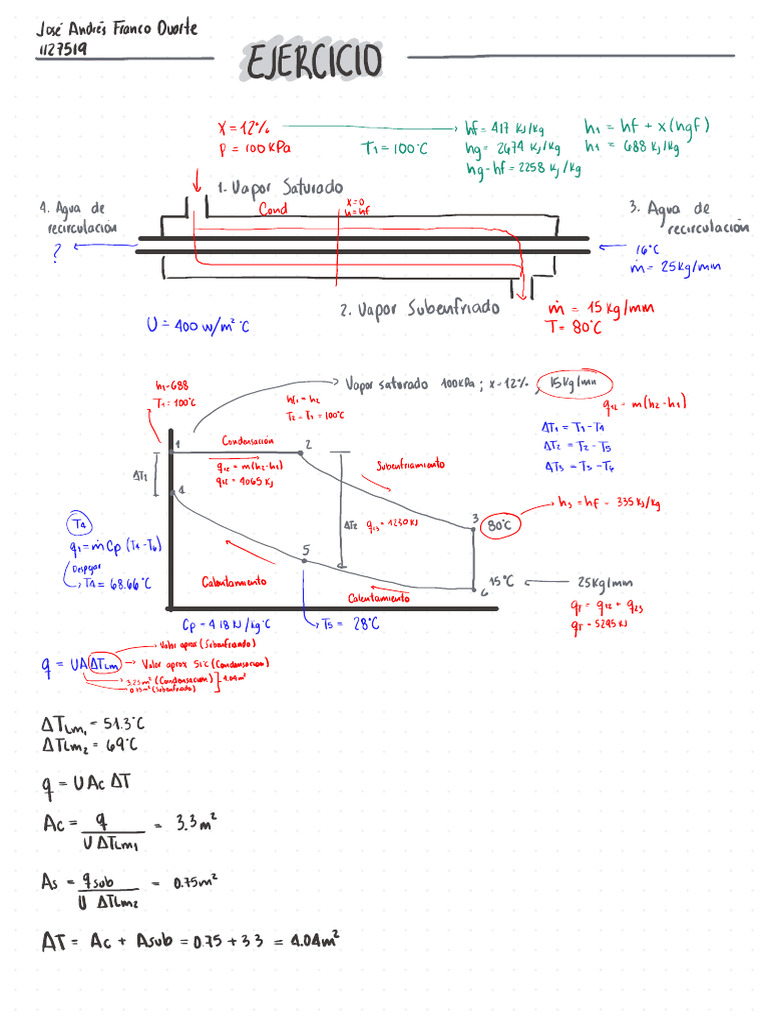 José Andrés Franco Duarte
1127519
EJERCICIO
X = 12%
P = 100 KPa
T1 = 100°C
hf = 417 KJ/Kg
hg = 2674 KJ/Kg
hg-hf = 2258 KJ/Kg
h1 = hf + x(hgf)
h1 = 688 KJ/Kg
1. Vapor Saturado
Cond
x=0
h=hf
4. Agua de
recirculación
?
3. Agua de
recirculación
16°C
ṁ = 25Kg/min
2. Vapor Subenfriado
ṁ = 15 Kg/mm
T = 80°C
U = 400 w/m² °C
h1-688
T1 = 100°C
Vapor saturado 100KPa ; x-12% , 15Kg/min
hf1 = h2
T2 = T1 = 100°C
q12 = m(h2-h1)
ΔT1 = T1-T4
ΔT2 = T2-T5
ΔT3 = T3-T6
1
Condensación
2
q12 = m(h2-h1)
q12 = 4065 KJ
ΔT1
Subenfriamiento
4
ΔT2
q23 = 1230 KJ
3
80°C
h3 = hf - 335 KJ/Kg
T4
q1 = ṁ Cp (T4-T6)
Despejar
T4 = 68.66°C
5
Calentamiento
Calentamiento
6
15°C
25Kg/min
qT = q12 + q23
qT = 5295 KJ
Cp = 4.18 KJ/Kg°C
T5 = 28°C
q = UAΔTLm
Valor aprox (Subenfriado)
Valor aprox 51°C (Condensacion)
3.25 m² (Condensación)
0.75 m² (Subenfriado)
4.04 m²
ΔTLm1 = 51.3°C
ΔTLm2 = 69°C
q = UAc ΔT
Ac = q / U ΔTLm1 = 3.3 m²
As = qsub / U ΔTLm2 = 0.75 m²
AT = Ac + Asub = 0.75 + 3.3 = 4.04 m²